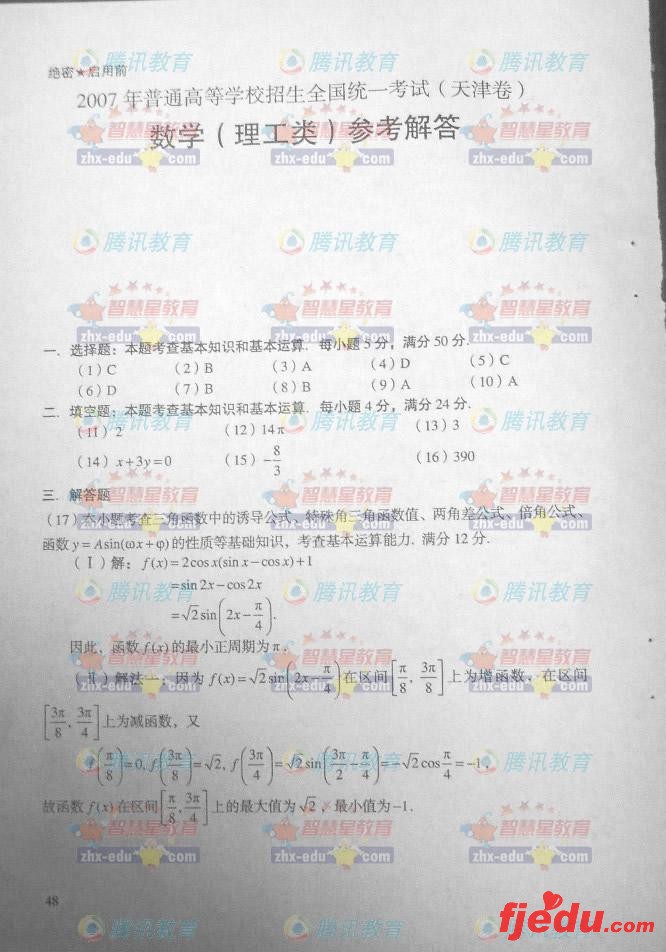 绝密★启用前
2007年普通高等学校招生全国统一考试（天津卷）
数学（理工类）参考解答
一. 选择题：本题考查基本知识和基本运算. 每小题5分，满分50分.
(1) C (2) B (3) A (4) D (5) C
(6) D (7) B (8) B (9) A (10) A
二. 填空题：本题考查基本知识和基本运算. 每小题4分，满分24分.
(11) 2 (12) 14π (13) 3
(14) x+3y=0 (15) -8/3 (16) 390
三. 解答题
(17) 本小题考查三角函数中的诱导公式、特殊角三角函数值、两角差公式、倍角公式、
函数 y=Asin(ωx+φ) 的性质等基础知识，考查基本运算能力. 满分12分.
(Ⅰ) 解：f(x)=2cosx(sinx-cosx)+1
=sin2x-cos2x
=√2sin(2x-π/4).
因此，函数 f(x) 的最小正周期为π.
(Ⅱ) 解法一：因为 f(x)=√2sin(2x-π/4) 在区间[π/8, 3π/8]上为增函数，在区间
[3π/8, 3π/4]上为减函数，又
f(π/8)=0, f(3π/8)=√2, f(3π/4)=√2sin(3π/2-π/4)=-√2cosπ/4=-1,
故函数 f(x) 在区间[π/8, 3π/4]上的最大值为√2，最小值为-1.
48
腾讯教育
智慧星教育
zhx-edu.com
fjedu.com